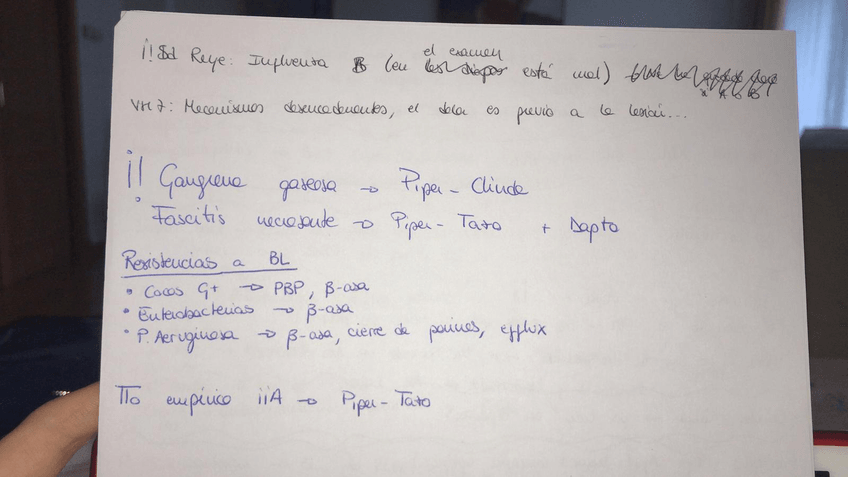 ¡! Sd Reye: Influenza B (en el examen está mal)
VHZ: Mecanismos desencadenantes, el dolor es previo a la lesión...
¡! Gangrena gaseosa → Piper-Clinda
Fascitis necrosante → Piper-Tazo + Dapto
Resistencias a BL
• Cocos G+ → PBP, β-asa
• Enterobacterias → β-asa
• P. Aeruginosa → β-asa, cierre de porinas, efflux
TTo empírico iiA → Piper-Tazo